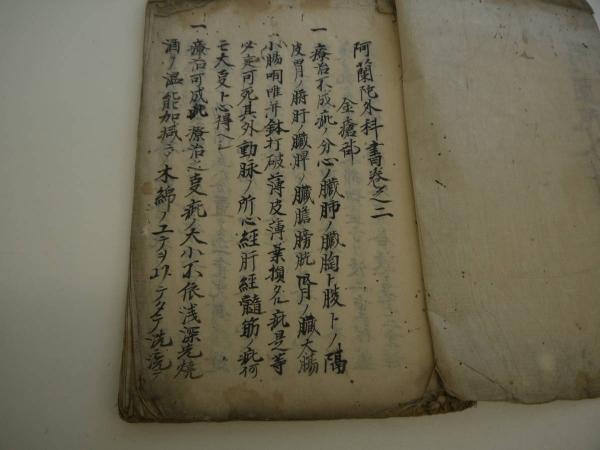 阿蘭陀外科書巻之二
金瘡部
一 療治不成疵ノ分心ノ臓肺ノ臓胸ト腹トノ隔
皮胃ノ腑肝ノ臓脾ノ臓膽膀胱腎ノ臓大腸
小腸咽喉并鉢打破薄皮薄葉損タル疵是等
必定可死其外動脉ノ所心經肝經髓筋ノ疵何
モ大事ト心得ヘシ
一 療治可成疵療治之事疵ノ大小不依浅深先焼
酒ノ温能加减シテ木綿ノユテヲヨリテタテ洗洗テ